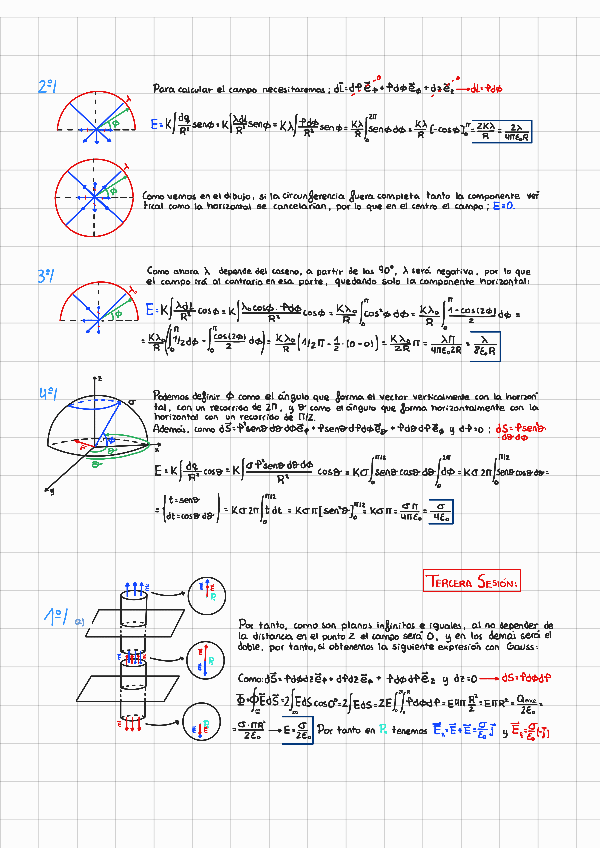 2º/
Para calcular el campo necesitaremos: dL⃗ = dρ e⃗ρ + ρdφ e⃗φ + dz e⃗z → dL = ρdφ
E = K∫ dq/R² senφ = K∫ λdL/R² senφ = Kλ∫ ρdφ/R² senφ = Kλ/R ∫ senφ dφ = Kλ/R [-cosφ] = 2Kλ/R = 2λ/4πε₀R
Como vemos en el dibujo, si la circunferencia fuera completa tanto la componente ver
tical como la horizontal se cancelarían, por lo que en el centro el campo: E=0.
3º/
Como ahora λ depende del coseno, a partir de los 90°, λ será negativa, por lo que
el campo irá al contrario en esa parte, quedando solo la componente horizontal:
E = K∫ λdL/R² cosφ = K∫ λ₀cosφ · ρdφ/R² cosφ = Kλ₀/R ∫₀^π cos²φ dφ = Kλ₀/R ∫₀^π 1+cos(2φ)/2 dφ =
= Kλ₀/R (∫₀^π 1/2 dφ + ∫₀^π cos(2φ)/2 dφ) = Kλ₀/R (1/2π - 1/2 · (0-0)) = Kλ₀/2R π = λπ/4πε₀2R = λ/8ε₀R
4º/
Podemos definir φ como el ángulo que forma el vector verticalmente con la horizon
tal, con un recorrido de 2π, y θ como el ángulo que forma horizontalmente con la
horizontal con un recorrido de π/2.
Además, como dS⃗ = ρ²senθ dθdφ e⃗ρ + ρsenθ dρdφ e⃗θ + ρdθdρ e⃗φ y dρ=0 ; dS = ρ²senθ dθ dφ
E = K∫ dq/R² cosθ = K∫ σρ²senθ dθ dφ/R² cosθ = Kσ∫₀^π/2 senθ cosθ dθ ∫₀^2π dφ = Kσ 2π∫₀^π/2 senθ cosθ dθ =
= {t = senθ dt = cosθ dθ} = Kσ 2π∫₀^π/2 t dt = Kσπ[sen²θ]₀^π/2 = Kσπ = σπ/4πε₀ = σ/4ε₀
TERCERA SESIÓN:
1º/ a)
Por tanto, como son planos infinitos e iguales, al no depender de
la distancia en el punto 2 el campo será 0, y en los demás será el
doble, por tanto, si obtenemos la siguiente expresión con Gauss:
Como: dS⃗ = ρdφdz e⃗ρ + dρdz e⃗φ + ρdρdφ e⃗z y dz=0 → dS = ρdφdρ
Φ = ∮E⃗dS⃗ = 2∫EdS cos0° = 2∫EdS = 2E∫∫ρdφdρ = E4π R²/2 = E2πR² =
= σ·πR²/2ε₀ → E = σ/2ε₀ Por tanto en P₁ tenemos E⃗